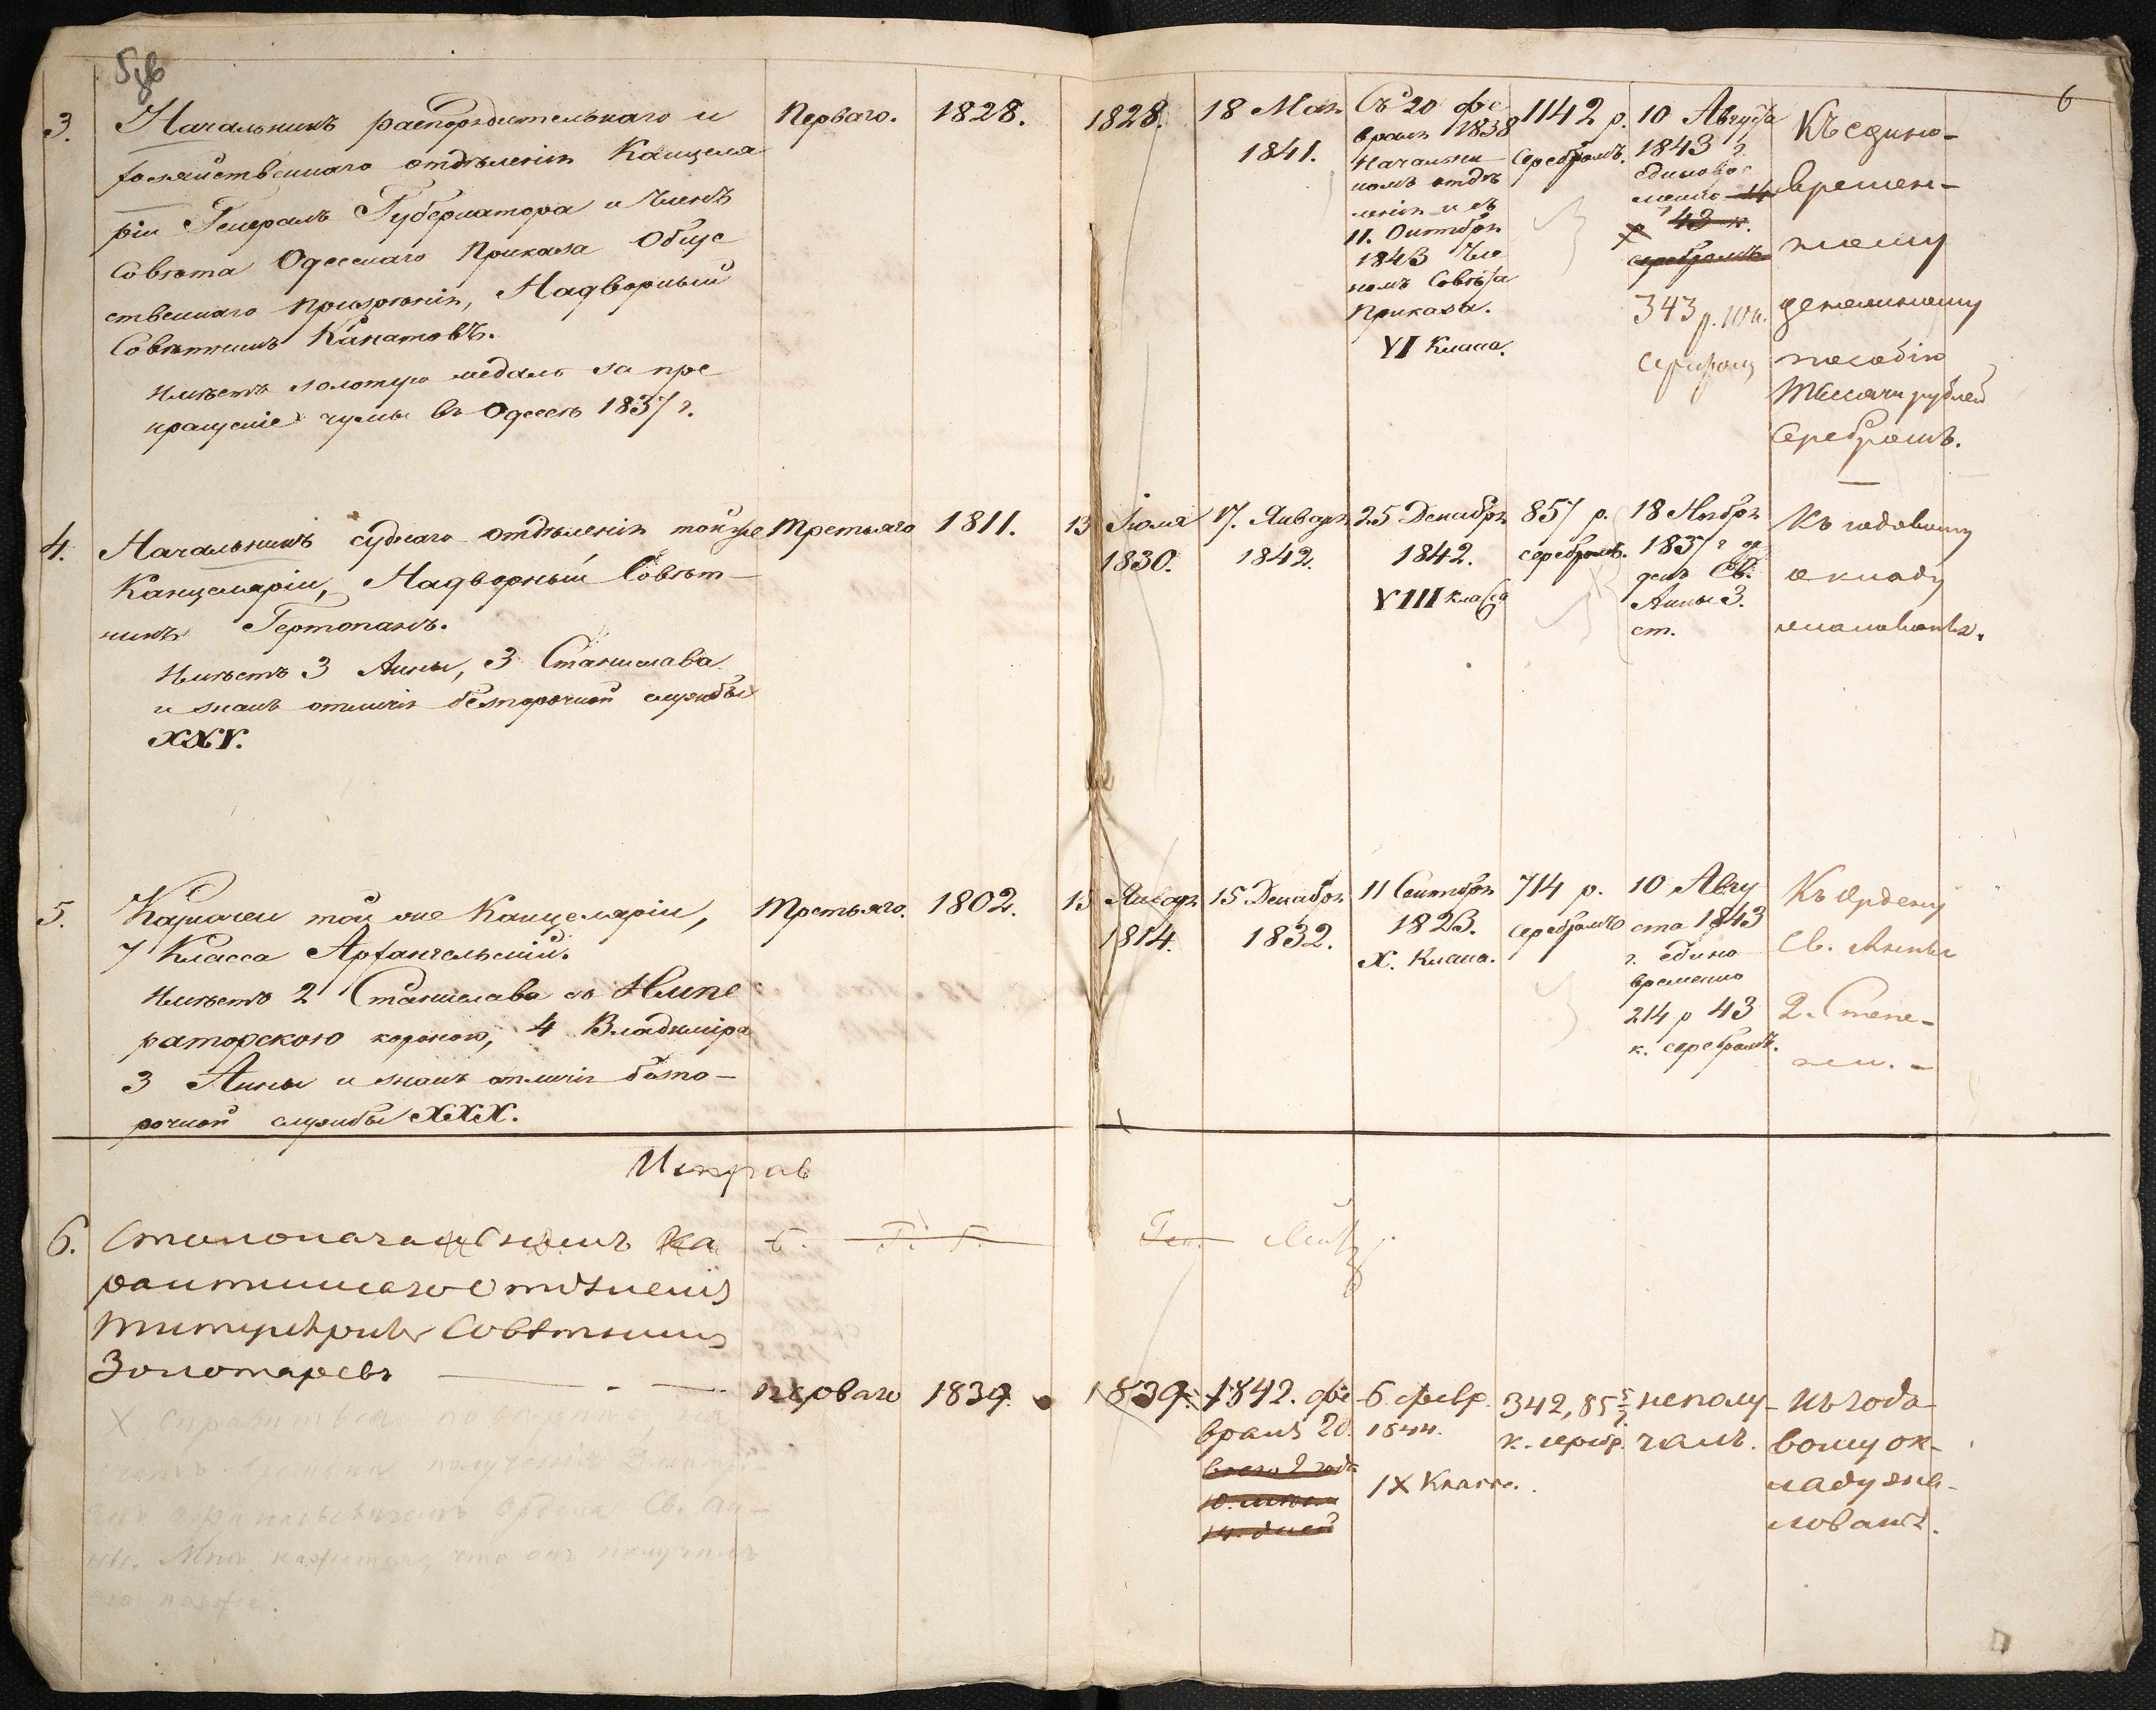 5 об
6
3.
Начальникъ распорядительнаго и
хозяйственнаго отдѣленія Канцеля
ріи Генералъ Губернатора и Членъ
Совѣта Одесскаго Приказа Обще
ственнаго призрѣнія, Надворный
Совѣтникъ Канатовъ.
Имѣетъ золотую медаль за пре
кращеніе чумы въ Одессѣ 1837 г.
Перваго.
1828.
1828.
18 Мая
1841.
Съ 20 фе
враля 1838
Начальни
комъ отдѣ
ленія и съ
11. Октября
1843 Чле
номъ Совѣта
Приказа.
VI Класса.
1142 р.
серебромъ.
10 Августа
1843 г.
единовре
менно
43 к.
серебромъ
343 р.
Къ едино-
времен-
ному
денежному
пособію
тысячи рублей
Серебромъ.
4.
Начальникъ суднаго отдѣленія той же
Канцеляріи, Надворный Совѣт-
никъ Гертопанъ.
Имѣетъ 3 Анны, 3 Станислава
и знакъ отличія безпорочной службы
XXV.
Третьяго
1811.
13 Іюля
1830.
17. Января
1842.
25 Декабря
1842.
VIII класса
857 р.
серебромъ.
18 Ноября
1837 г ор
денъ Св.
Анны 3.
ст.
Къ годовому
окладу
жалованья.
5.
Казначеи той же Канцеляріи,
7 Класса Архангельскій.
Имѣетъ 2 Станислава съ Импе
раторскою короною, 4 Владиміра
3 Анны и знакъ отличія безпо-
рочной службы XXX.
Третьяго.
1802.
15 Января
1814.
15 Декабря
1832.
11 Сентября
1823.
X. Класса.
714 р.
серебромъ
10 Авгу
ста 1843
г. едино
временно
214 р 43
к. серебромъ.
Къ Ордену
Св. Анны
2. Степе-
ни. -
Исправ
6.
Столоначальникъ Ка
рантиннаго Отдѣленія
Титулярный Совѣтникъ
Золотаревъ
перваго
1839.
1839.
1842. фе
враля 20.
всего 2 года
10. мѣся
14. дней
6. февр.
1844.
IX Класса.
342,85 5/7
к. серебр.
не полу-
чалъ.
Къ годо-
вому ок-
ладу жа-
лованья.
X Справиться
получения
Ордена Св. Ан-
ны. Мнѣ кажется, что онъ получилъ
его позже.